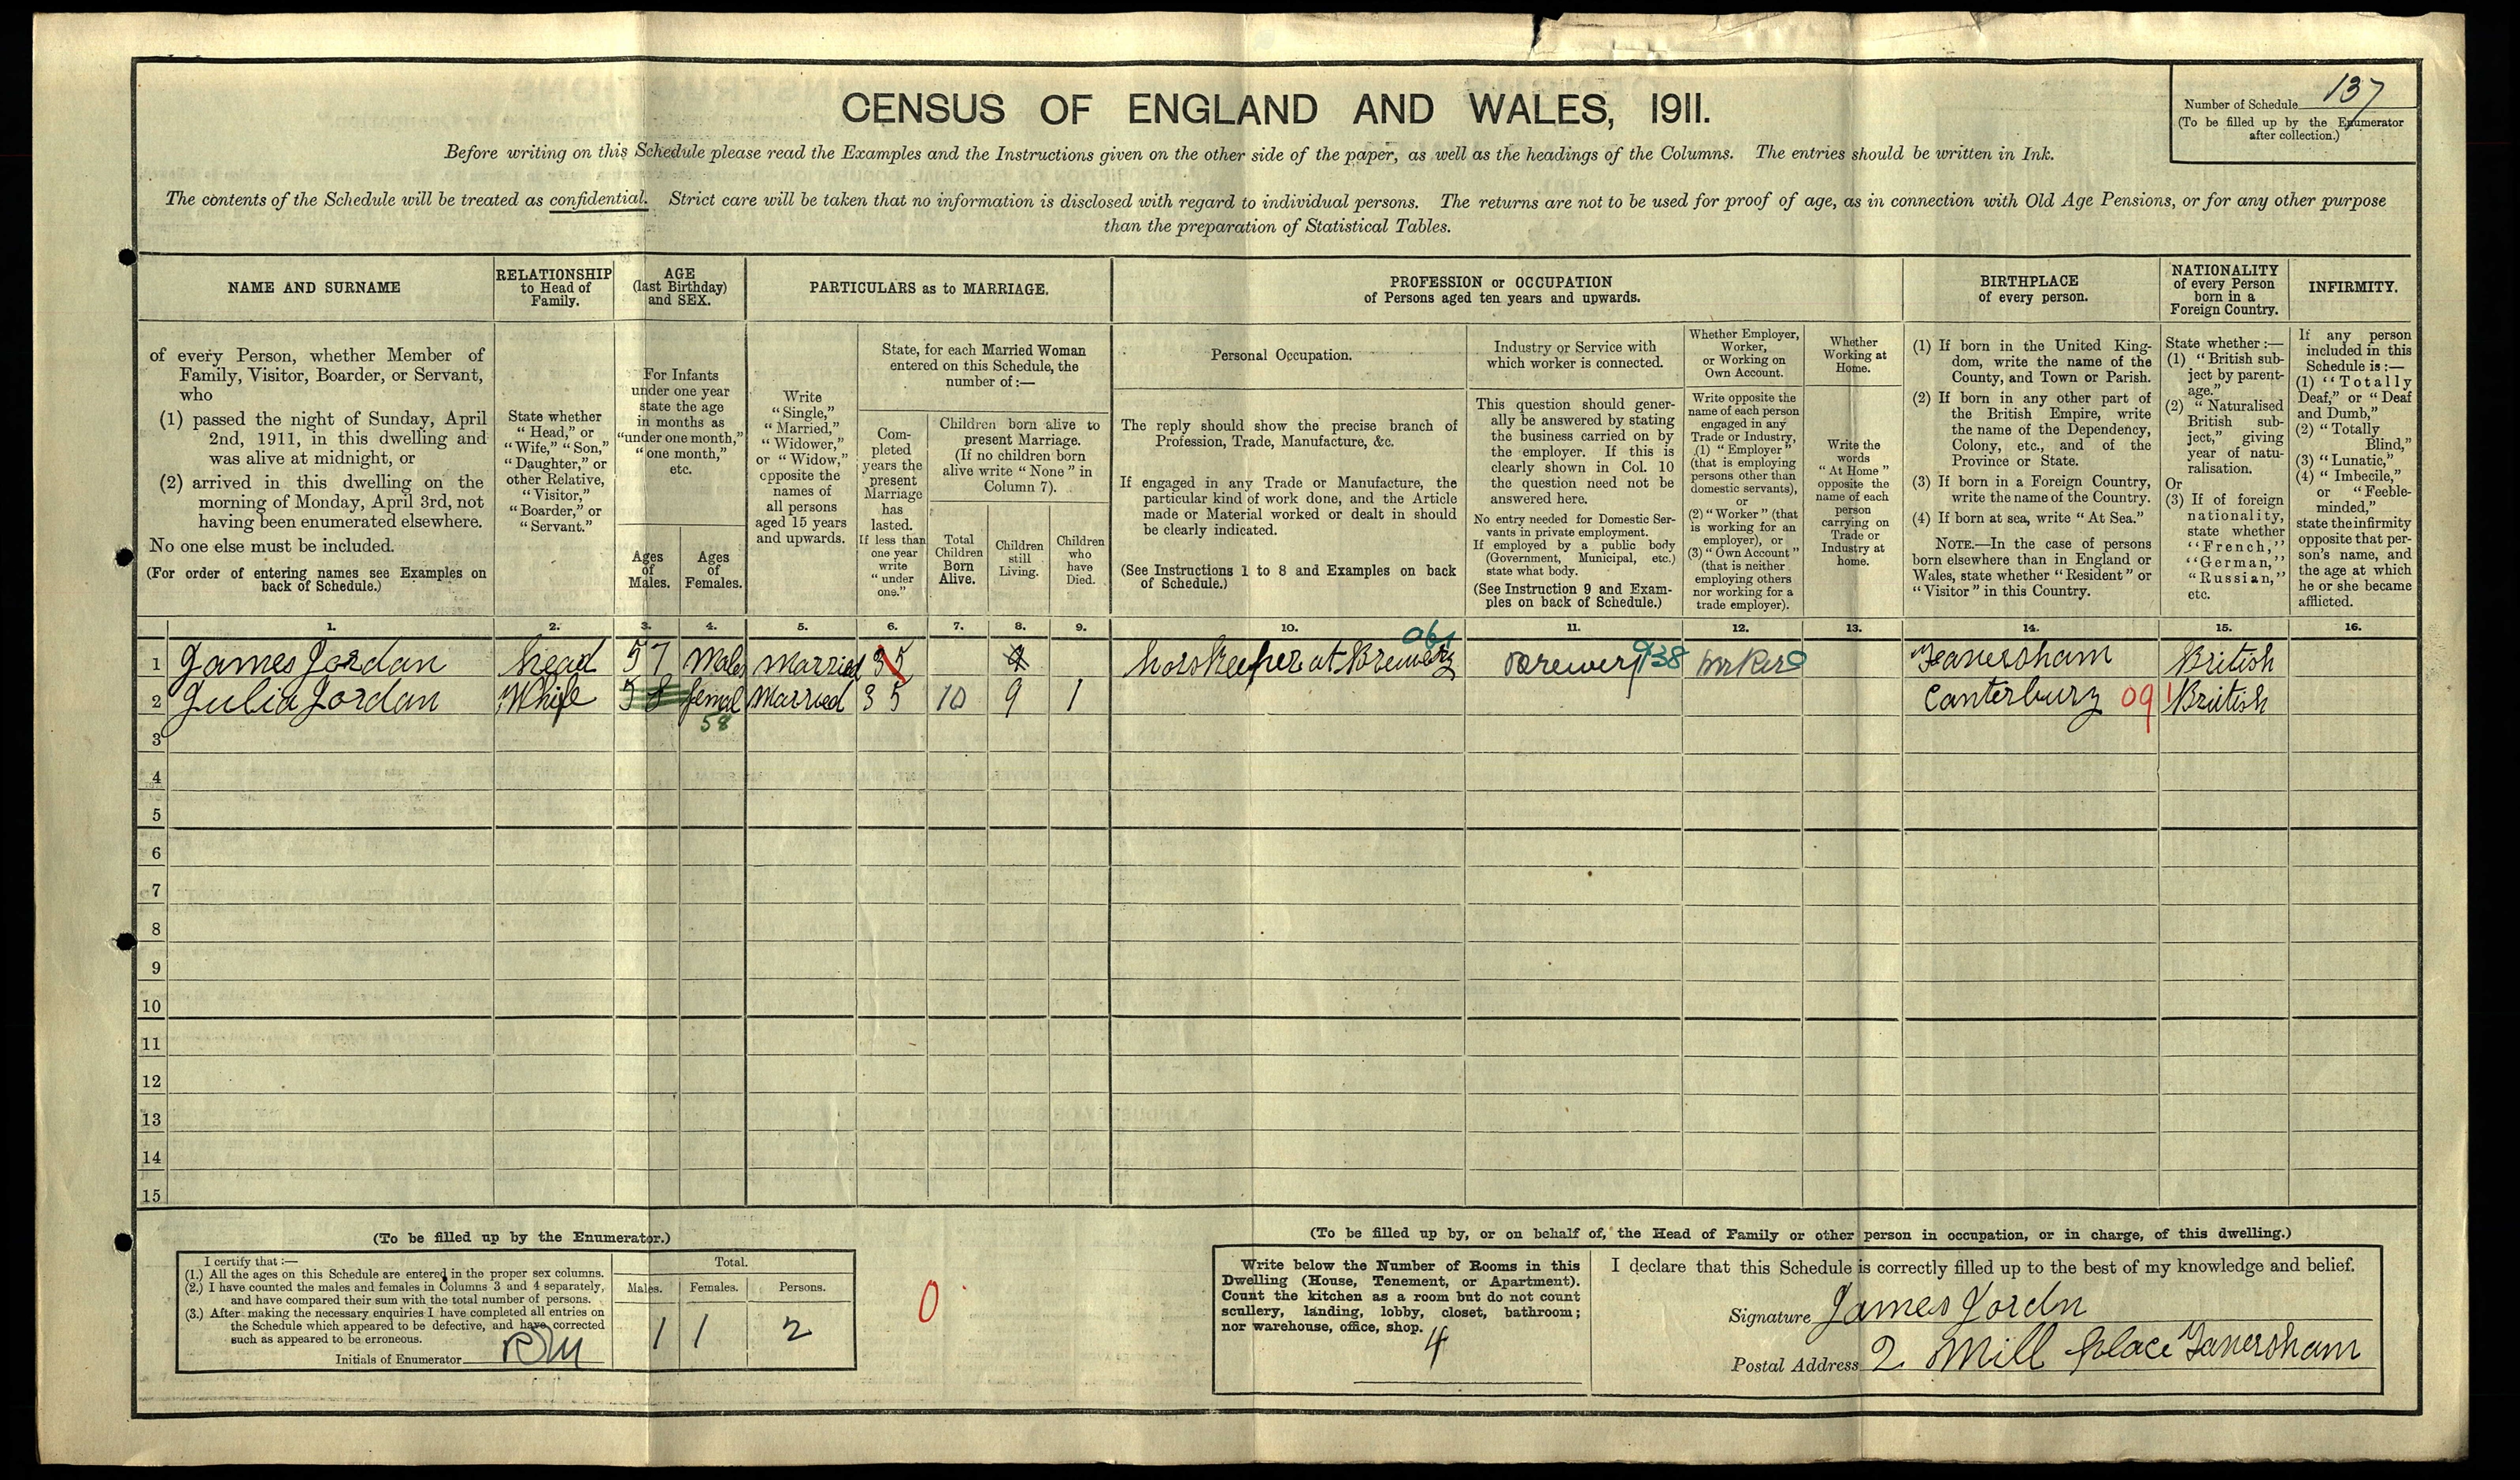 CENSUS OF ENGLAND AND WALES, 1911.
Number of Schedule 137
(To be filled up by the Enumerator
after collection.)
Before writing on this Schedule please read the Examples and the Instructions given on the other side of the paper, as well as the headings of the Columns. The entries should be written in Ink.
The contents of the Schedule will be treated as confidential. Strict care will be taken that no information is disclosed with regard to individual persons. The returns are not to be used for proof of age, as in connection with Old Age Pensions, or for any other purpose
than the preparation of Statistical Tables.
NAME AND SURNAME
of every Person, whether Member of
Family, Visitor, Boarder, or Servant,
who
(1) passed the night of Sunday, April
2nd, 1911, in this dwelling and
was alive at midnight, or
(2) arrived in this dwelling on the
morning of Monday, April 3rd, not
having been enumerated elsewhere.
No one else must be included.
(For order of entering names see Examples on
back of Schedule.)
RELATIONSHIP
to Head of
Family.
State whether
"Head," or
"Wife," "Son,"
"Daughter," or
other Relative,
"Visitor,"
"Boarder," or
"Servant."
AGE
(last Birthday)
and SEX.
For Infants
under one year
state the age
in months as
"under one month,"
"one month,"
etc.
Ages
of
Males.
Ages
of
Females.
PARTICULARS as to MARRIAGE.
Write
"Single,"
"Married,"
"Widower,"
or "Widow,"
opposite the
names of
all persons
aged 15 years
and upwards.
State, for each Married Woman
entered on this Schedule, the
number of:—
Com-
pleted
years the
present
Marriage
has
lasted.
If less than
one year
write
"under
one."
Children born alive to
present Marriage.
(If no children born
alive write "None" in
Column 7).
Total
Children
Born
Alive.
Children
still
Living.
Children
who
have
Died.
PROFESSION or OCCUPATION
of Persons aged ten years and upwards.
Personal Occupation.
The reply should show the precise branch of
Profession, Trade, Manufacture, &c.
If engaged in any Trade or Manufacture, the
particular kind of work done, and the Article
made or Material worked or dealt in should
be clearly indicated.
(See Instructions 1 to 8 and Examples on back
of Schedule.)
Industry or Service with
which worker is connected.
This question should gener-
ally be answered by stating
the business carried on by
the employer. If this is
clearly shown in Col. 10
the question need not be
answered here.
No entry needed for Domestic Ser-
vants in private employment.
If employed by a public body
(Government, Municipal, etc.)
state what body.
(See Instruction 9 and Exam-
ples on back of Schedule.)
Whether Employer,
Worker,
or Working on
Own Account.
Write opposite the
name of each person
engaged in any
Trade or Industry,
(1) "Employer"
(that is employing
persons other than
domestic servants),
or
(2) "Worker" (that
is working for an
employer), or
(3) "Own Account"
(that is neither
employing others
nor working for a
trade employer).
Whether
Working at
Home.
Write the
words
"At Home"
opposite the
name of each
person
carrying on
Trade or
Industry at
home.
BIRTHPLACE
of every person.
(1) If born in the United King-
dom, write the name of the
County, and Town or Parish.
(2) If born in any other part of
the British Empire, write
the name of the Dependency,
Colony, etc., and of the
Province or State.
(3) If born in a Foreign Country,
write the name of the Country.
(4) If born at sea, write "At Sea."
NOTE.—In the case of persons
born elsewhere than in England or
Wales, state whether "Resident" or
"Visitor" in this Country.
NATIONALITY
of every Person
born in a
Foreign Country.
State whether:—
(1) "British sub-
ject by parent-
age."
(2) "Naturalised
British sub-
ject," giving
year of natu-
ralisation.
Or
(3) If of foreign
nationality,
state whether
"French,"
"German,"
"Russian,"
etc.
INFIRMITY.
If any person
included in this
Schedule is:—
(1) "Totally
Deaf," or "Deaf
and Dumb,"
(2) "Totally
Blind,"
(3) "Lunatic,"
(4) "Imbecile,"
or "Feeble-
minded,"
state the infirmity
opposite that per-
son's name, and
the age at which
he or she became
afflicted.
1. 2. 3. 4. 5. 6. 7. 8. 9. 10. 11. 12. 13. 14. 15. 16.
1 James Jordan head 57 Male married 35 9 horskeeper at Brewery Brewery 938 Faversham British
2 Julia Jordan Whife 58 femal Married 35 10 9 1 Canterbury 091 British
58
3
4
5
6
7
8
9
10
11
12
13
14
15
(To be filled up by the Enumerator.)
I certify that:—
(1.) All the ages on this Schedule are entered in the proper sex columns.
(2.) I have counted the males and females in Columns 3 and 4 separately,
and have compared their sum with the total number of persons.
(3.) After making the necessary enquiries I have completed all entries on
the Schedule which appeared to be defective, and have corrected
such as appeared to be erroneous.
Initials of Enumerator
Total.
Males. Females. Persons.
1 1 2
0
(To be filled up by, or on behalf of, the Head of Family or other person in occupation, or in charge, of this dwelling.)
Write below the Number of Rooms in this
Dwelling (House, Tenement, or Apartment).
Count the kitchen as a room but do not count
scullery, landing, lobby, closet, bathroom;
nor warehouse, office, shop.
4
I declare that this Schedule is correctly filled up to the best of my knowledge and belief.
Signature James Jordn
Postal Address 2 Mill place Faversham